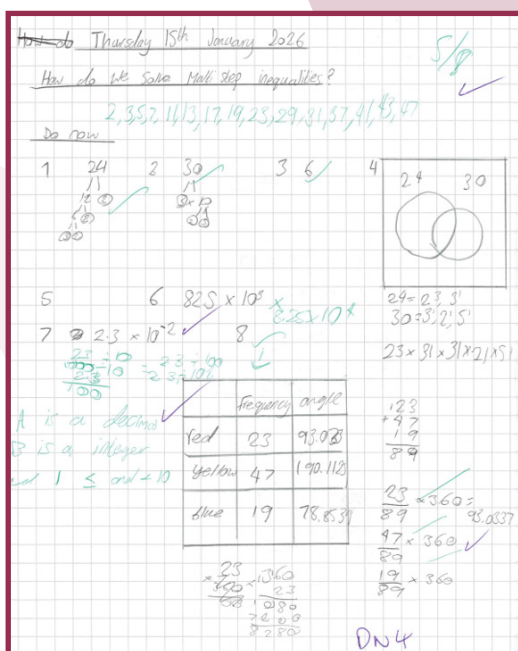 How do Thursday 15th January 2026
5/8
How do we solve Multi step inequalities?
2,3,5,7,11,13,17,19,23,29,31,37,41,43,47
Do now
1 24 2 30 3 6 4
24 30
5 6 825 × 10³
8.25×10⁴
24 = 2³, 3¹
30 = 3¹, 2¹, 5¹
7 2.3 × 10⁻² 8
A is a decimal
B is a integer
and 1 ≤ and < 10
frequency angle
red 23
yellow 47 190.112
blue 19
23
+47
19
89
23/89 × 360 =
93.0337
47/89 × 360
19/89 × 360
360
23
1080
7200
8280
DN4